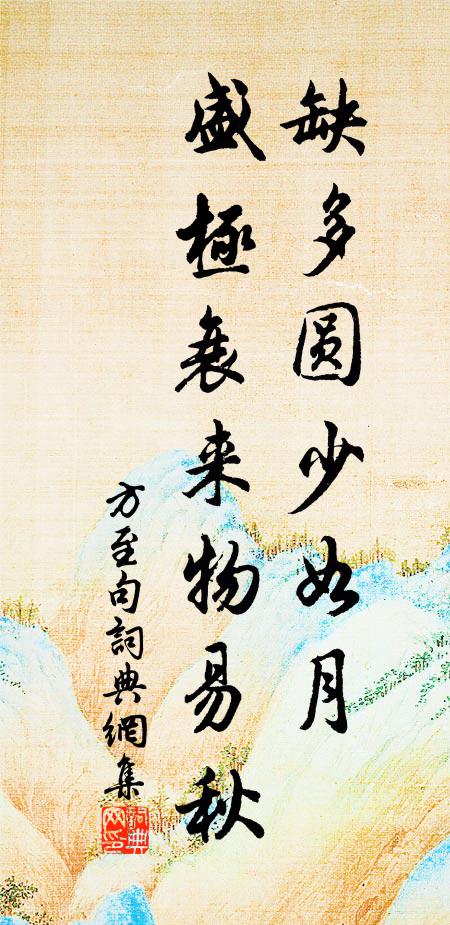 缺多圆少如月
盛極衰来物易秋
方至句詞典網集
詞典網印